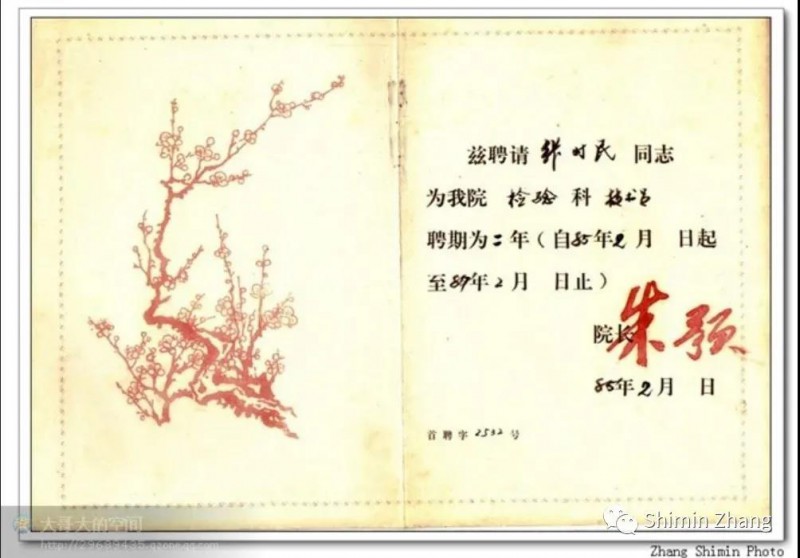 兹聘请 张时民 同志
为我院 检验 科 技术员
聘期为二年（自85年2月 日起
至87年2月 日止）
院长 朱预
85年2月 日
首聘字2532号
大哥大的空间
Shimin Zhang
Zhang Shimin Photo